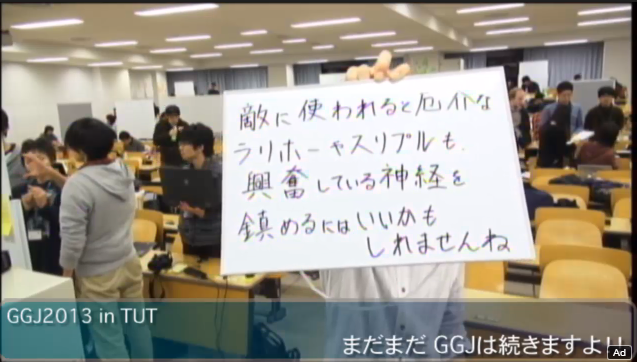 敵に使われると厄介な
ラリホーやスリプルも、
興奮している神経を
鎮めるにはいいかも
しれませんね
GGJ2013 in TUT
まだまだ GGJは続きますよ!!
Ad